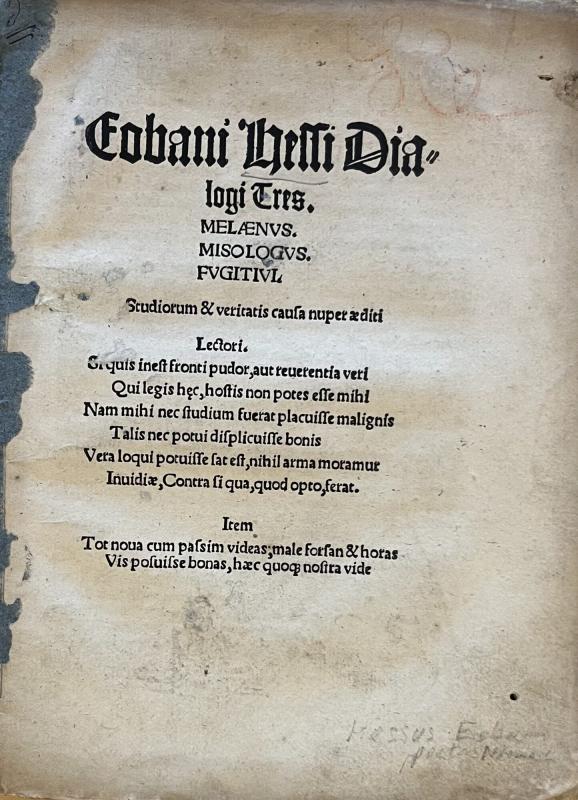 Eobani Hessi Dia⸗
logi Tres.
MELÆNVS.
MISOLOGVS.
FVGITIVI.
Studiorum & veritatis causa nuper æditi
Lectori.
Si quis inest fronti pudor, aut reuerentia veri
Qui legis hęc, hostis non potes esse mihi
Nam mihi nec studium fuerat placuisse malignis
Talis nec potui displicuisse bonis
Vera loqui potuisse sat est, nihil arma moramur
Inuidiæ, Contra si qua, quod opto, ferat.
Item
Tot noua cum passim videas; male forsan & horas
Vis posuisse bonas, hæc quoqꝫ nostra vide
Hessus Eoban
poeta